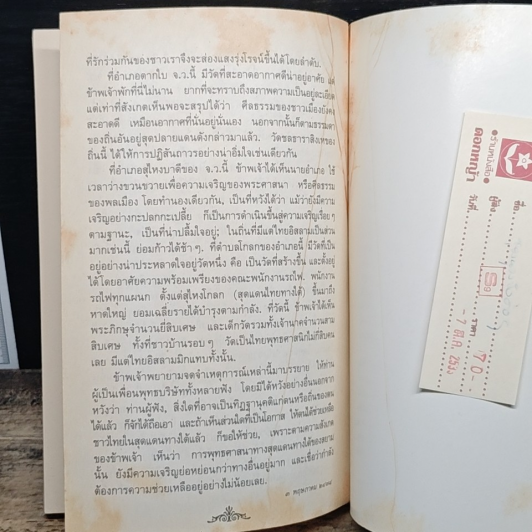 ที่รักร่วมกันของชาวเราจึงจะส่องแสงรุ่งโรจน์ขึ้นได้โดยลำดับ.
ที่อำเภอตากใบ จ.ว.นี้ มีวัดที่สะอาดอากาศดีน่าอยู่อาศัย แต่
ข้าพเจ้าพักที่นี่ไม่นาน ยากที่จะทราบถึงสภาพความเป็นอยู่ละเอียด
แต่เท่าที่สังเกตเห็นพอจะสรุปได้ว่า ศีลธรรมของชาวเมืองยังคง
สะอาดดี เหมือนอากาศที่นั่นอยู่นั่นเอง นอกจากนั้นก็ตามธรรมดา
ของถิ่นอันอยู่สุดปลายแดนดังกล่าวมาแล้ว. วัดชลธาราสิงเหของ
ถิ่นนี้ ได้ให้การปฏิสันถารอย่างน่าอิ่มใจเช่นเดียวกัน
ที่อำเภอสุไหงปาดีของ จ.ว.นี้ ข้าพเจ้าได้เห็นนายอำเภอ ใช้
เวลาว่างชวนขวายเพื่อความเจริญของพระศาสนา หรือศีลธรรม
ของพลเมือง โดยทำนองเดียวกัน, เป็นที่หวังได้ว่า แม้ว่ายังมีความ
เจริญอย่างกะปลกกะเปลี้ย ก็เป็นการดำเนินขึ้นสู่ความเจริญเรื่อย ๆ
ตามฐานะ, เป็นที่น่าปลื้มใจอยู่; ในถิ่นที่มีแต่ไทยอิสลามเป็นส่วน
มากเช่นนี้ ย่อมก้าวได้ช้า ๆ. ที่ตำบลโกลกของอำเภอนี้ มีวัดที่เป็น
อยู่อย่างน่าประหลาดใจอยู่วัดหนึ่ง คือ เป็นวัดที่สร้างขึ้น และตั้งอยู่
ได้โดยอาศัยความพร้อมเพรียงของคณะพนักงานรถไฟ. พนักงาน
รถไฟทุกแผนก ตั้งแต่สุไหงโกลก (สุดแดนไทยทางใต้) ขึ้นมาถึง
หาดใหญ่ ย่อมเฉลี่ยรายได้บำรุงตามกำลัง. ที่วัดนี้ ข้าพเจ้าได้เห็น
พระภิกษุจำนวนยี่สิบเศษ และเด็กวัดรวมทั้งเจ้านาคจำนวนสาม
สิบเศษ ทั้งที่ชาวบ้านรอบ ๆ วัดเป็นไทยพุทธศาสนิกไม่กี่สิบคน
เลย มีแต่ไทยอิสลามมิกแทบทั้งนั้น.
ข้าพเจ้าพยายามจดจำเหตุการณ์เหล่านี้มาบรรยาย ให้ท่าน
ผู้เป็นเพื่อนพุทธบริษัททั้งหลายฟัง โดยมิได้หวังอย่างอื่นนอกจาก
หวังว่า ท่านผู้ฟัง, สิ่งใดที่อาจเป็นทิฏฐานุคติแก่ตนหรือถิ่นของตน
ได้แล้ว ก็จักได้ถือเอา และถ้าเห็นส่วนใดที่เป็นโอกาส ให้ตนได้ช่วยเหลือ
ชาวไทยในสุดแดนทางใต้แล้ว ก็ขอให้ช่วย, เพราะตามความสังเกต
ของข้าพเจ้า เห็นว่า การพุทธศาสนาทางสุดแดนทางใต้ของสยาม
นั้น ยังมีความเจริญย่อหย่อนกว่าทางอื่นอยู่มาก และเชื่อว่ากำลัง
ต้องการความช่วยเหลืออยู่อย่างไม่น้อยเลย.
๓ พฤษภาคม ๒๔๗๘
ร้านหนังสือ
ดอกหญ้า
ชื่อ
ผู้แต่ง
วันที่
ราคา
70.-